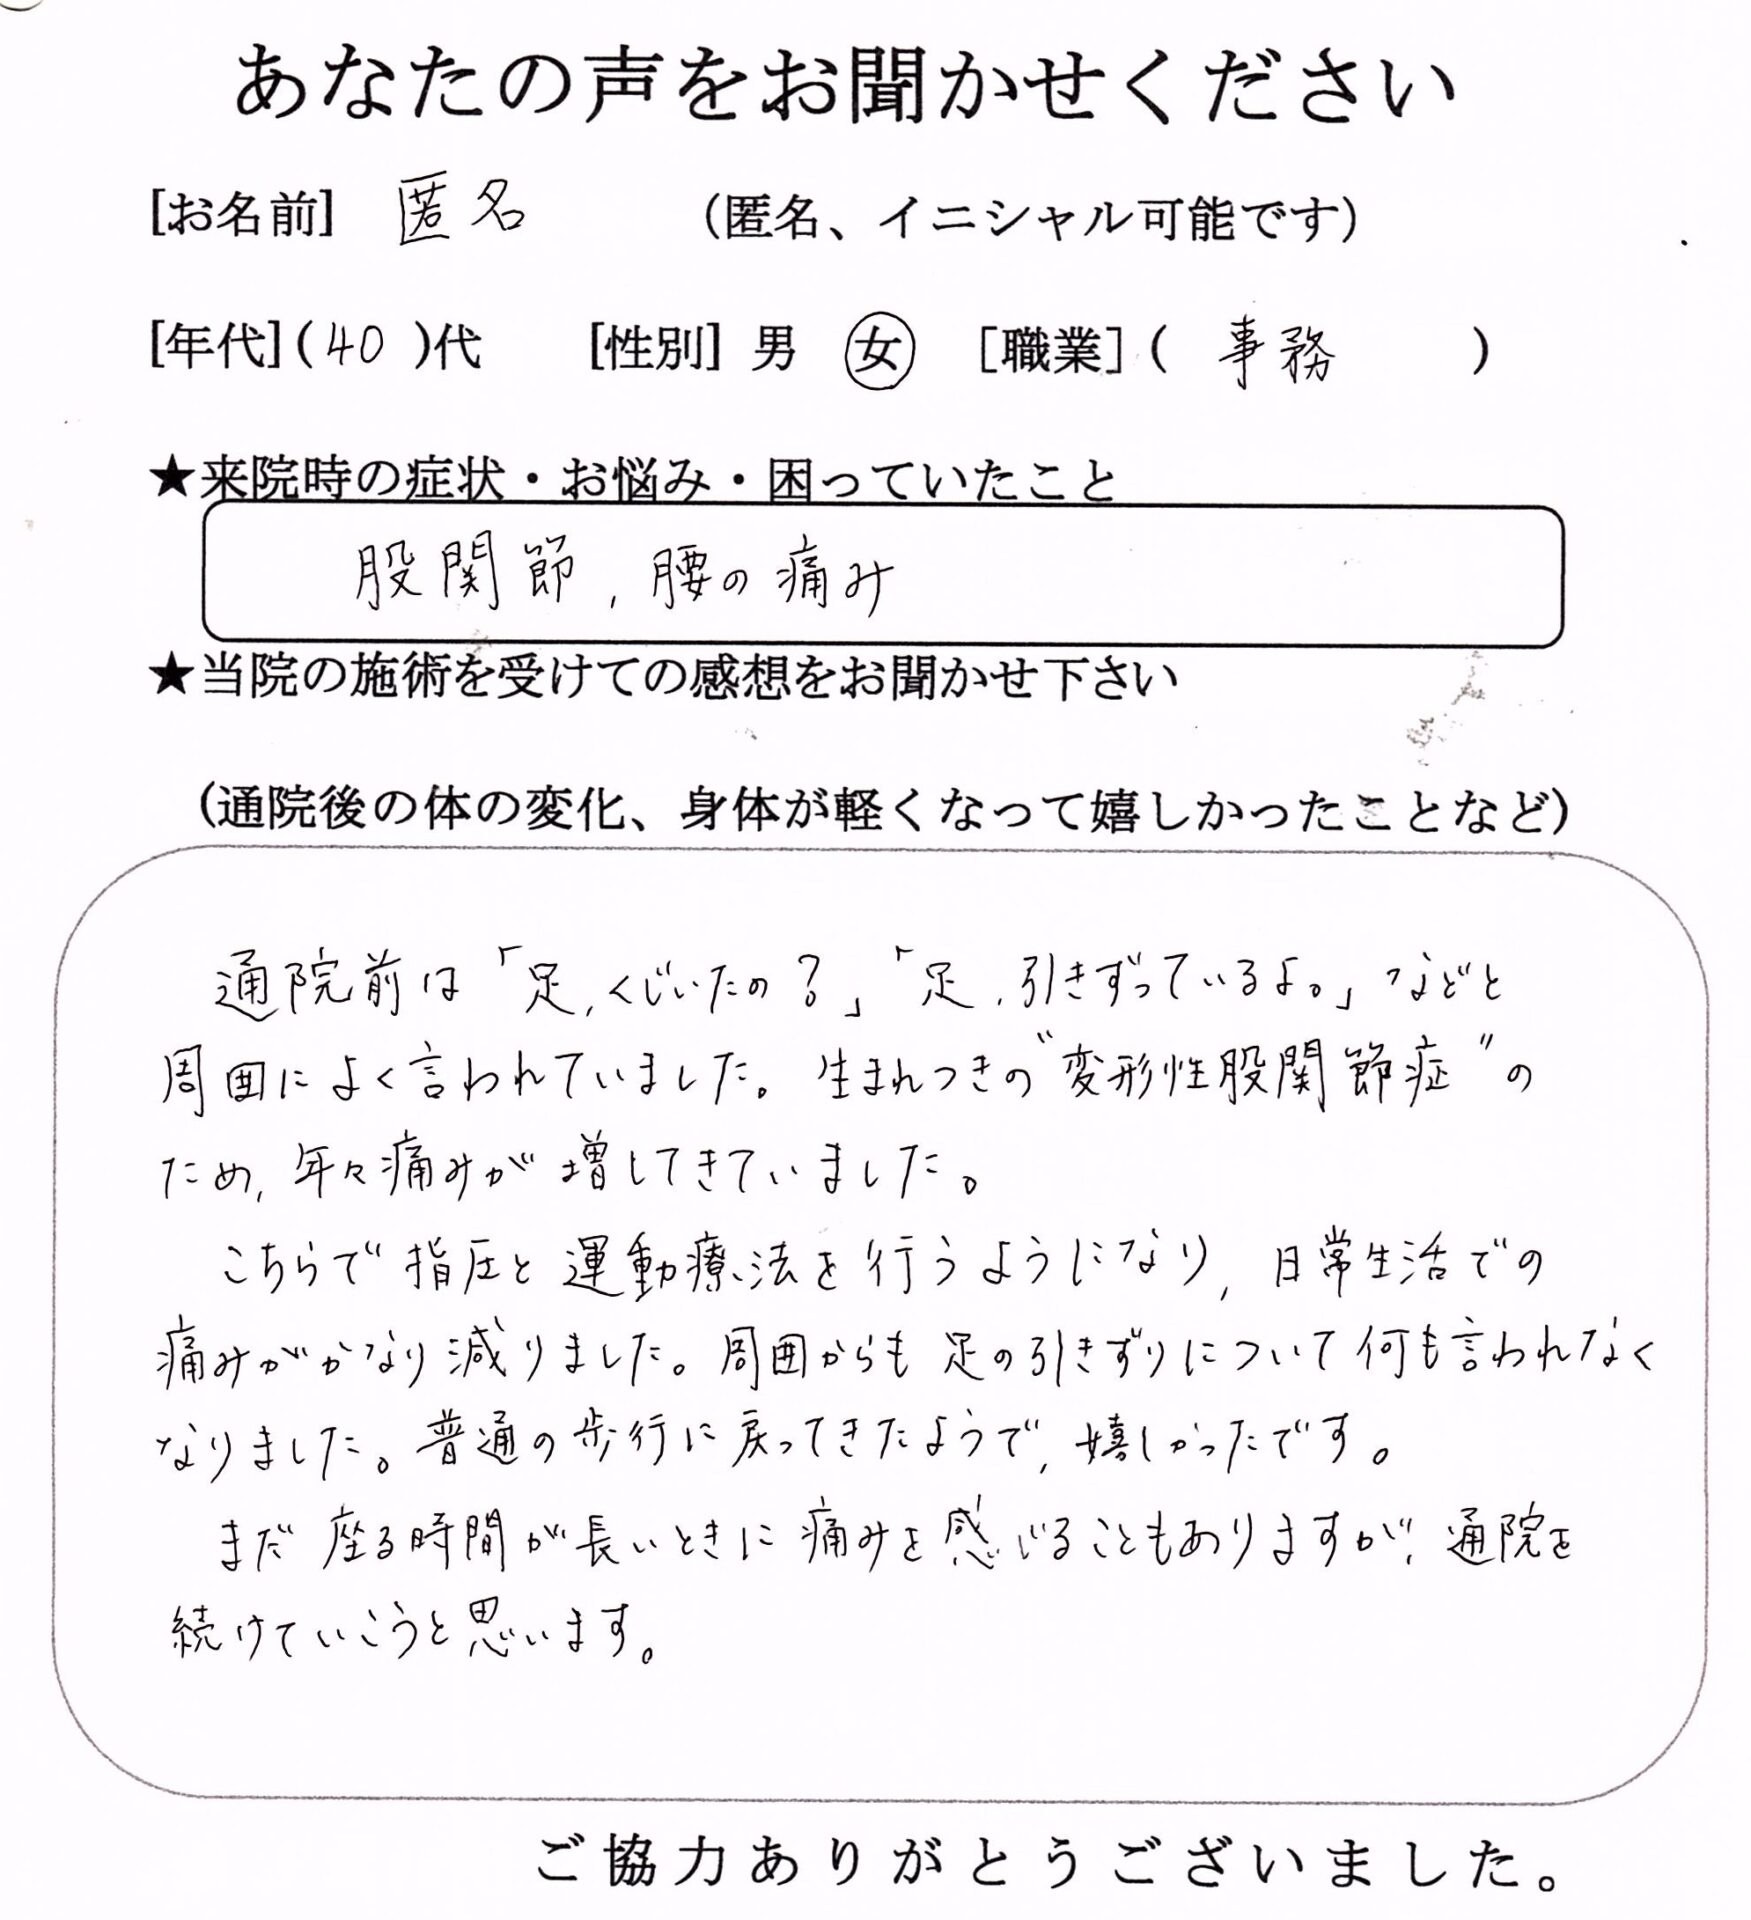 あなたの声をお聞かせください
[お名前] 匿名 (匿名、イニシャル可能です)
[年代](40)代 [性別] 男 女 [職業]( 事務 )
★来院時の症状・お悩み・困っていたこと
股関節,腰の痛み
★当院の施術を受けての感想をお聞かせ下さい
(通院後の体の変化、身体が軽くなって嬉しかったことなど)
通院前は「足,くじいたの?」「足,引きずっているよ。」などと
周囲によく言われていました。生まれつきの"変形性股関節症"の
ため,年々痛みが増してきていました。
こちらで指圧と運動療法を行うようになり,日常生活での
痛みがかなり減りました。周囲からも足の引きずりについて何も言われなく
なりました。普通の歩行に戻ってきたようで,嬉しかったです。
まだ座る時間が長いときに痛みを感じることもありますが,通院を
続けていこうと思います。
ご協力ありがとうございました。